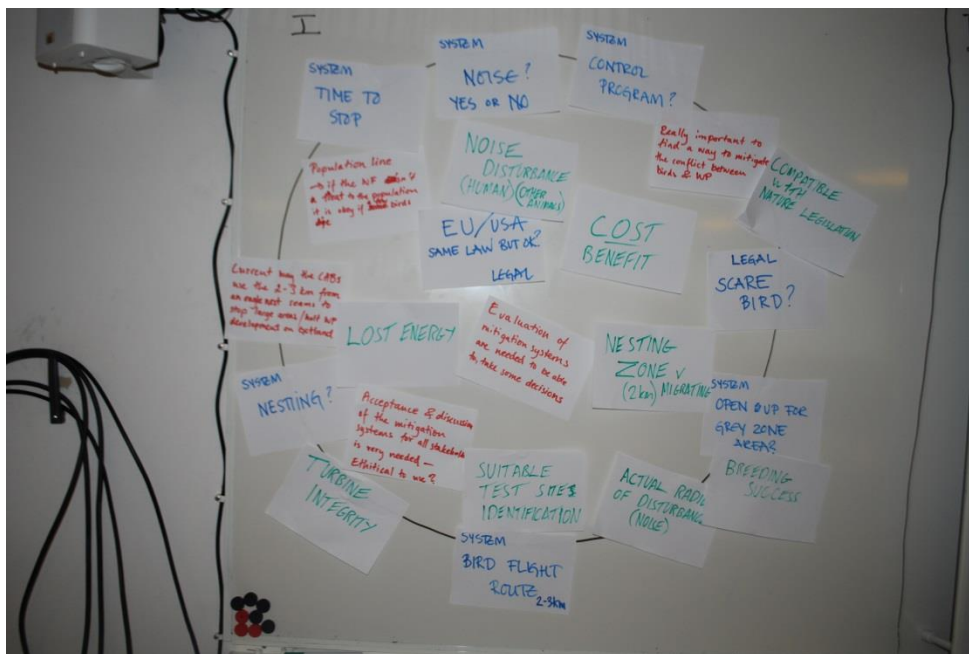 I
SYSTEM
TIME TO
STOP
SYSTEM
NOISE?
YES OR NO
SYSTEM
CONTROL
PROGRAM?
Population line
→ If the WF
a threat to the population
it is okay if birds
NOISE
DISTURBANCE
(HUMAN) (OTHER
ANIMALS)
Really important to
find a way to mitigate
the conflict between
birds & WP
COMPATIBLE
WITH
NATURE LEGISLATION
EU/USA
SAME LAW BUT OK?
LEGAL
COST
BENEFIT
LEGAL
SCARE
BIRD?
Current way the CABs
use the 2-3 km from
an nest seems to
stop large areas/halt WP
development on
LOST ENERGY
Evaluation of
mitigation systems
are needed to be able
to take some decisions
NESTING
ZONE V
(2km) MIGRATING
SYSTEM
NESTING?
Acceptance & discussion
of the mitigation
systems for all
is very needed —
Ethitical to use?
SYSTEM
OPEN UP FOR
GREY ZONE
AREA?
TURBINE
INTEGRITY
SUITABLE
TEST SITES
IDENTIFICATION
ACTUAL RADI
OF DISTURBANCE
(NOICE)
BREEDING
SUCCESS
SYSTEM
BIRD FLIGHT
ROUTE 2-3km